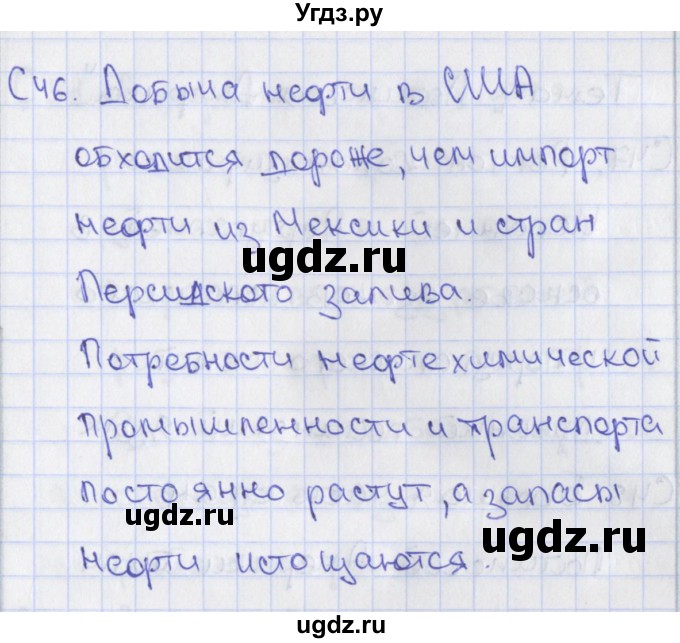 Угдз.ру
С46. Добыча нефти в США
обходится дороже, чем импорт
нефти из Мексики и стран
ugdz.ru
Персидского залива.
Потребности нефтехимической
промышленности и транспорта
постоянно растут, а запасы
ugdz.ru ugdz.ru
нефти истощаются.
ugdz.ru